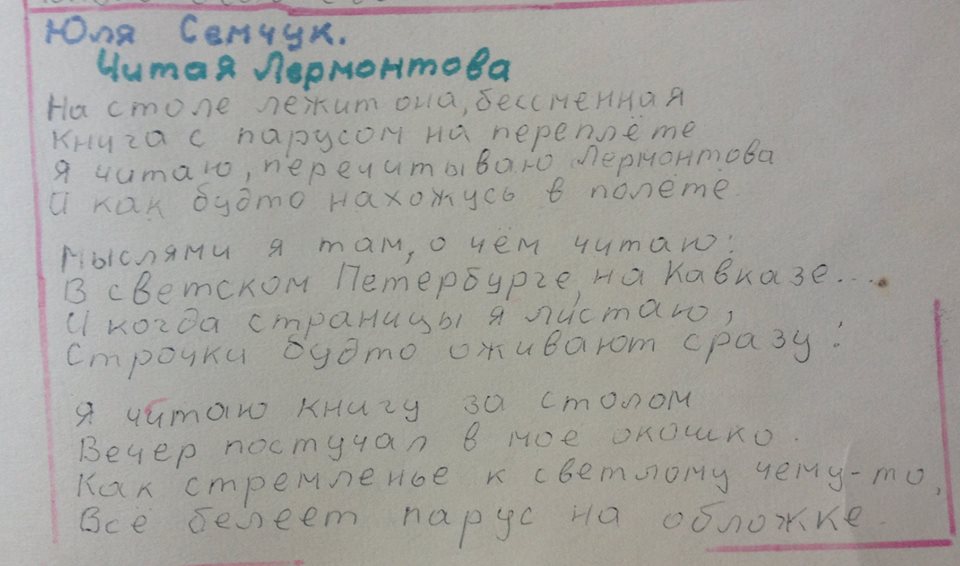 Юля Семчук.
Читая Лермонтова
На столе лежит она, бессменная
Книга с парусом на переплёте
Я читаю, перечитываю Лермонтова
И как будто нахожусь в полёте.
Мыслями я там, о чём читаю:
В светском Петербурге, на Кавказе...
И когда страницы я листаю,
Строчки будто оживают сразу!
Я читаю книгу за столом
Вечер постучал в мое окошко.
Как стремленье к светлому чему-то,
Всё белеет парус на обложке.